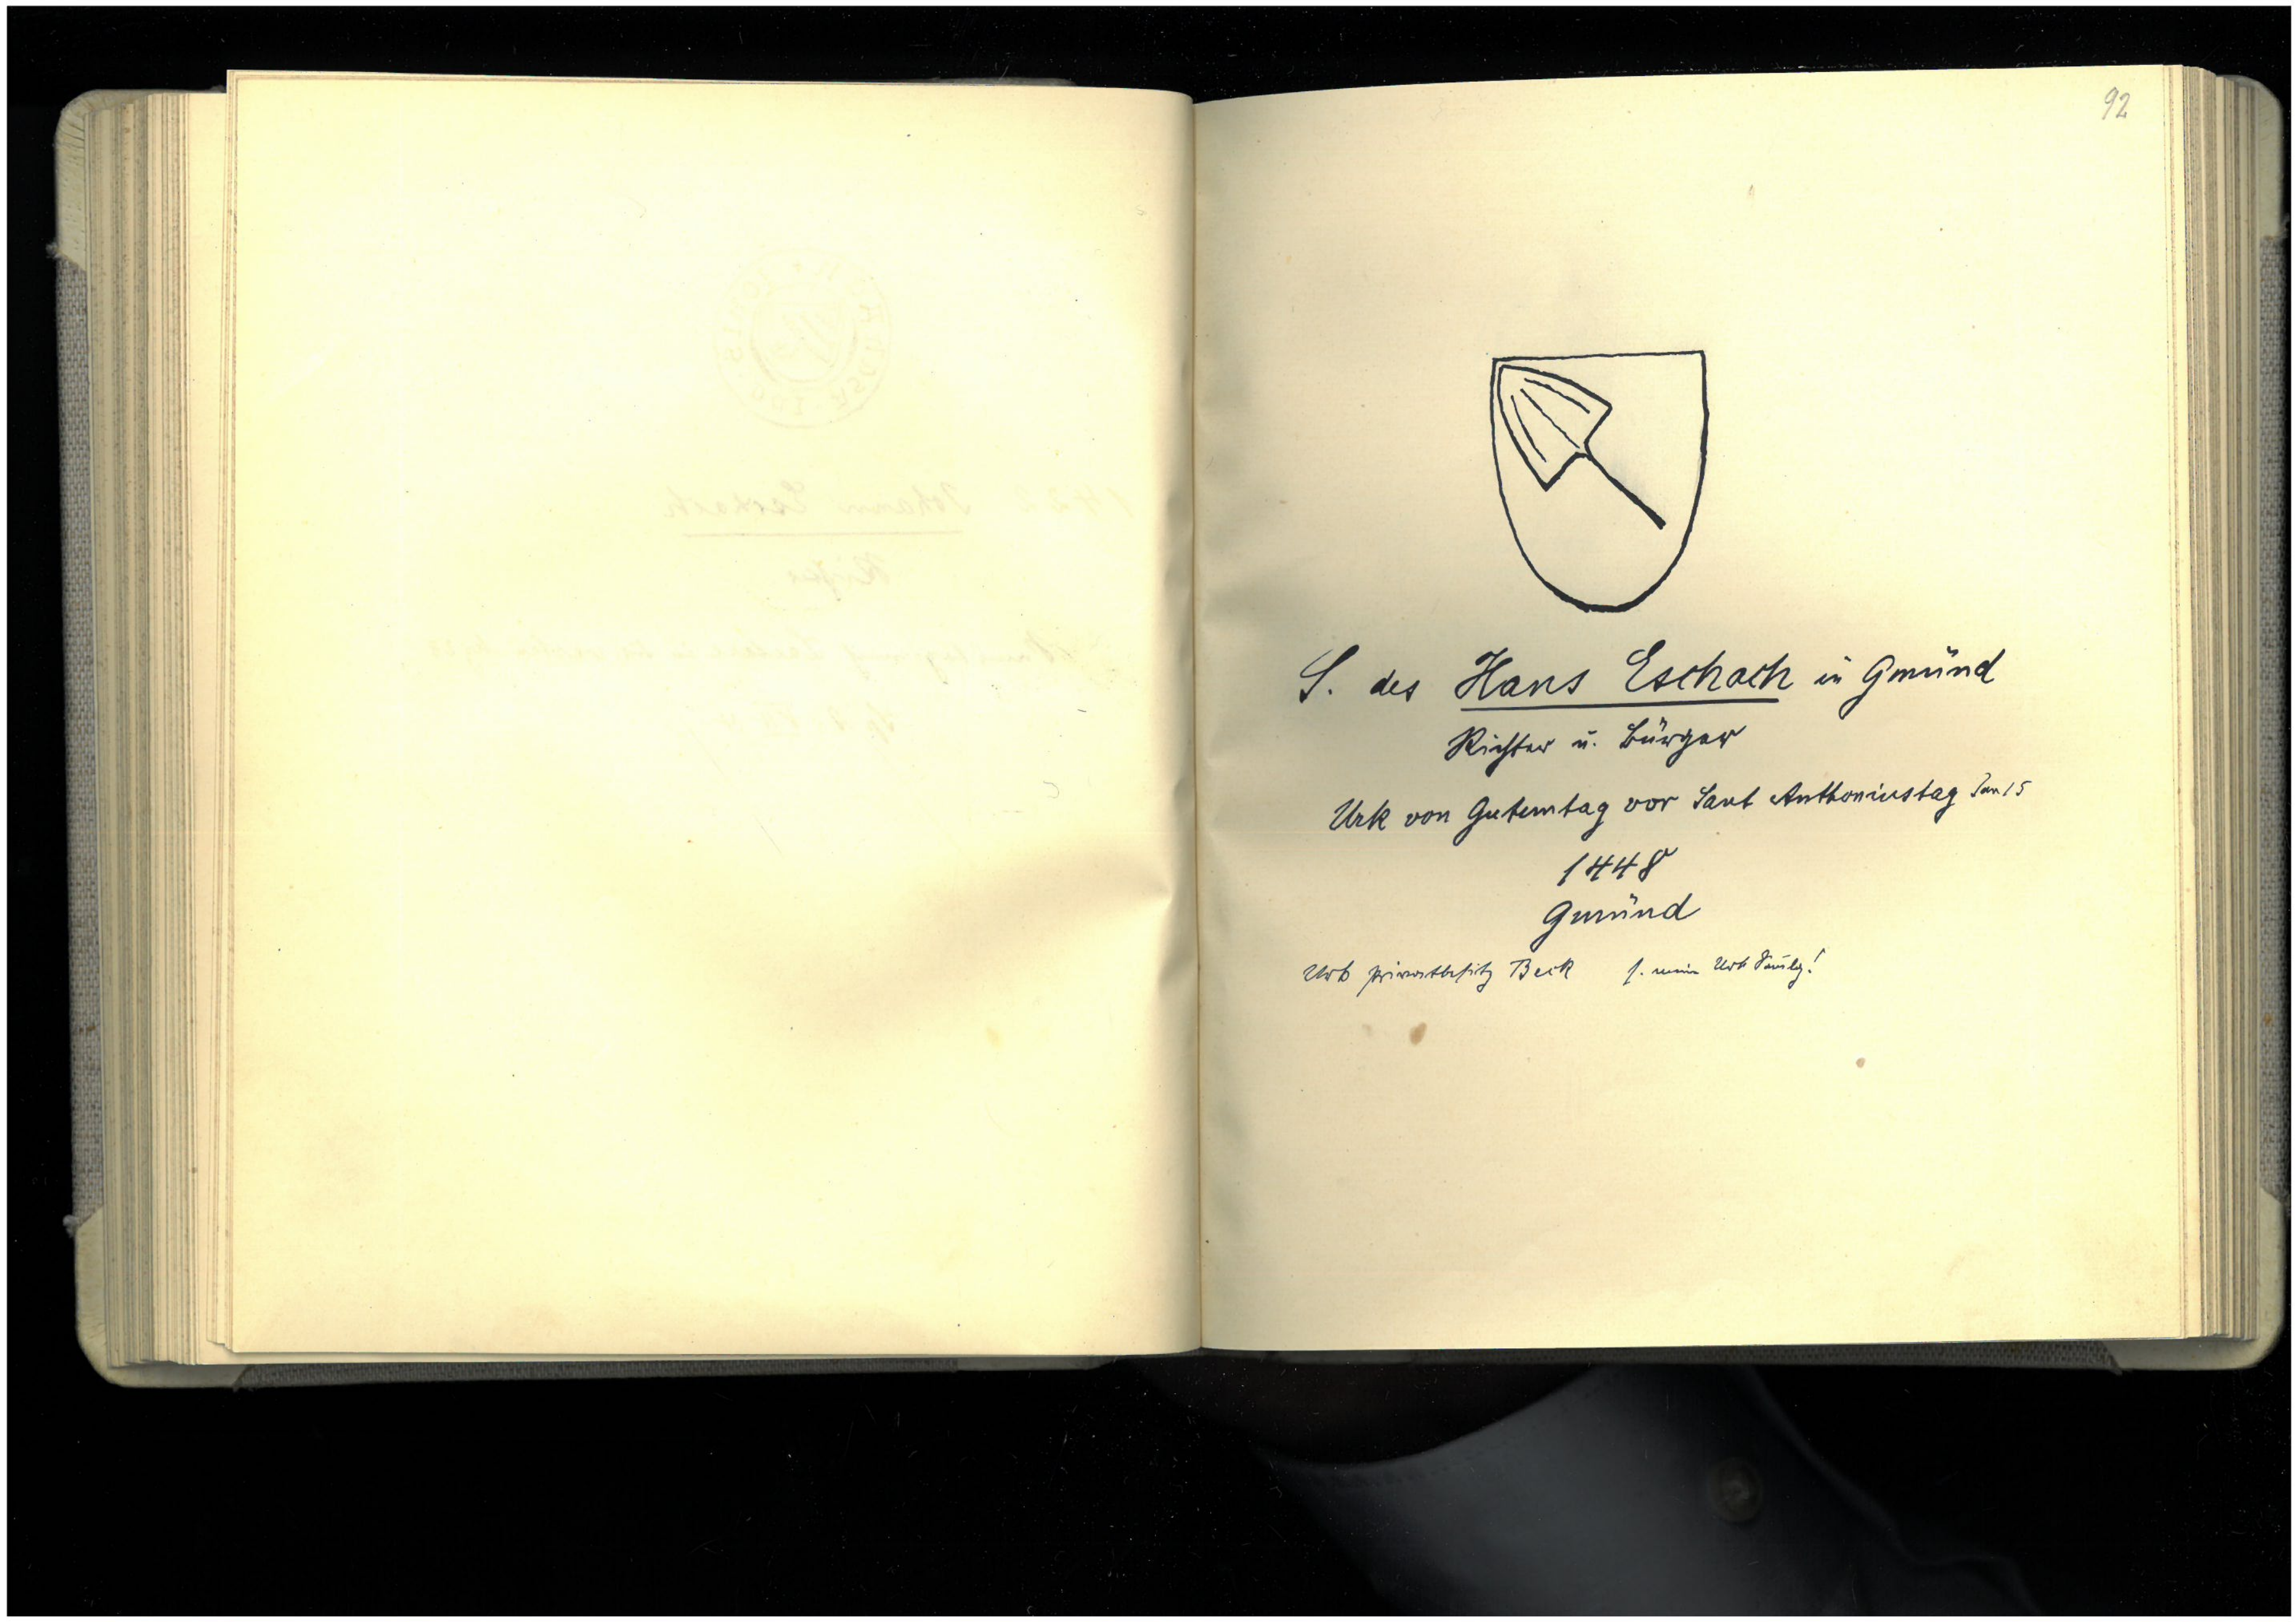 92
S. des Hans Eschach in Gmünd
Richter u. Bürger
Urk von Gutemtag vor Sant Anthoniustag Jan 15
1448
Gmünd
Urk Privatbesitz Beck s. meine Urk